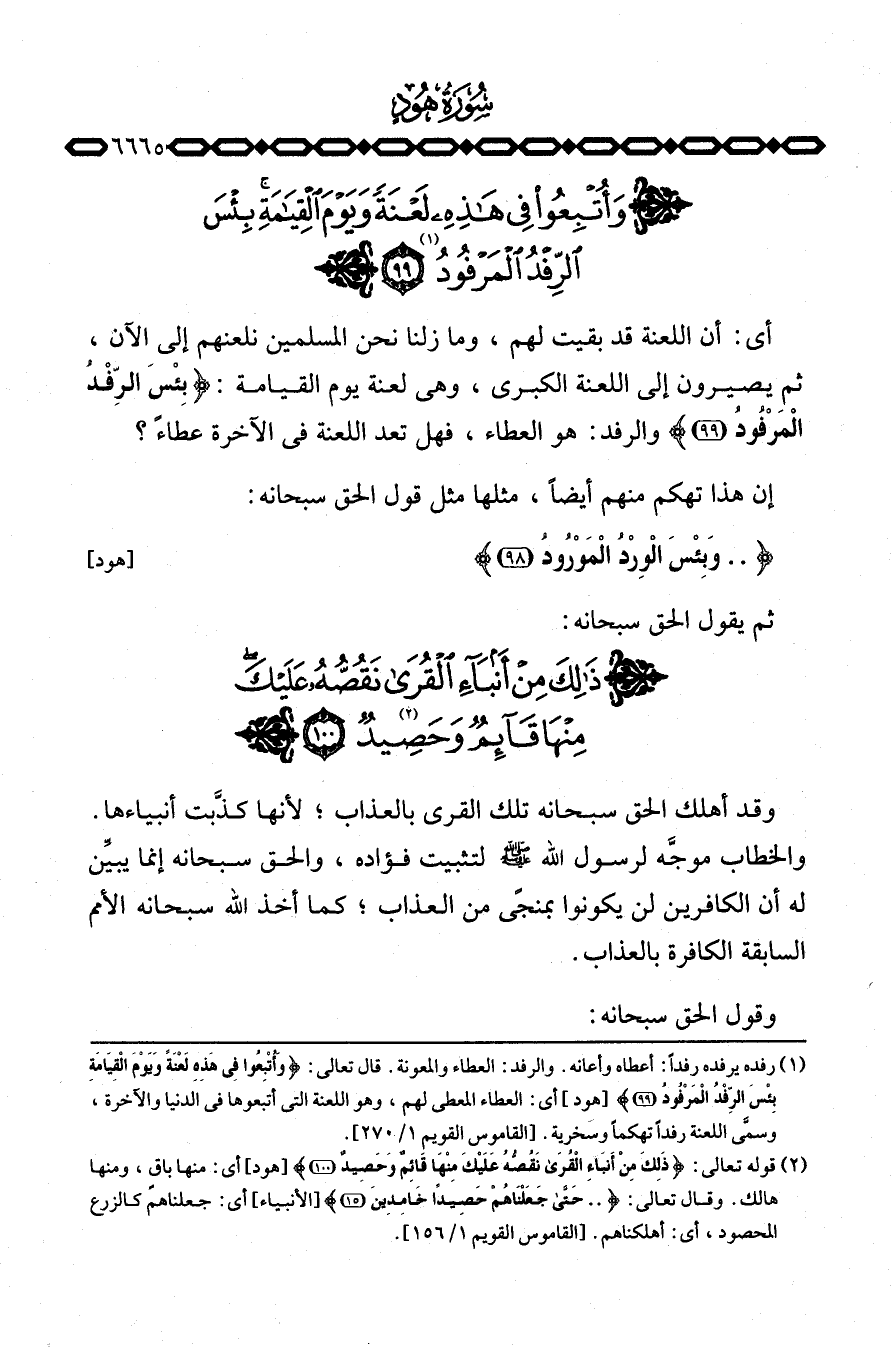 سُورَةُ هُودٍ
٦٦٦٥
وَأُتْبِعُوا۟ فِى هَٰذِهِۦ لَعْنَةً وَيَوْمَ ٱلْقِيَٰمَةِ ۚ بِئْسَ
ٱلرِّفْدُ ٱلْمَرْفُودُ (١) ٩٩
أى : أن اللعنة قد بقيت لهم ، وما زلنا نحن المسلمين نلعنهم إلى الآن ،
ثم يصيرون إلى اللعنة الكبرى ، وهى لعنة يوم القيامة : ﴿ بِئْسَ الرِّفْدُ
الْمَرْفُودُ (٩٩) ﴾ والرفد : هو العطاء ، فهل تعد اللعنة فى الآخرة عطاءً ؟
إن هذا تهكم منهم أيضاً ، مثلها مثل قول الحق سبحانه :
﴿ .. وَبِئْسَ الْوِرْدُ الْمَوْرُودُ (٩٨) ﴾ [هود]
ثم يقول الحق سبحانه :
ذَٰلِكَ مِنْ أَنۢبَآءِ ٱلْقُرَىٰ نَقُصُّهُۥ عَلَيْكَ ۖ
مِنْهَا قَآئِمٌ وَحَصِيدٌ (٢) ١٠٠
وقد أهلك الحق سبحانه تلك القرى بالعذاب ؛ لأنها كذَّبت أنبياءها .
والخطاب موجَّه لرسول الله ﷺ لتثبيت فؤاده ، والحق سبحانه إنما يبيِّن
له أن الكافرين لن يكونوا بمنجًى من العذاب ؛ كما أخذ الله سبحانه الأمم
السابقة الكافرة بالعذاب .
وقول الحق سبحانه :
(١) رفده يرفده رفداً : أعطاه وأعانه . والرفد : العطاء والمعونة . قال تعالى : ﴿ وَأُتْبِعُوا فِى هَذِهِ لَعْنَةً وَيَوْمَ الْقِيَامَةِ
بِئْسَ الرِّفْدُ الْمَرْفُودُ (٩٩) ﴾ [هود ] أى : العطاء المعطى لهم ، وهو اللعنة التى أتبعوها فى الدنيا والآخرة ،
وسمَّى اللعنة رفداً تهكماً وسخرية . [القاموس القويم ١/ ٢٧٠].
(٢) قوله تعالى : ﴿ ذَلِكَ مِنْ أَنبَاءِ الْقُرَىٰ نَقُصُّهُ عَلَيْكَ مِنْهَا قَائِمٌ وَحَصِيدٌ (١٠٠) ﴾ [هود] أى : منها باق ، ومنها
هالك . وقال تعالى : ﴿ .. حَتَّىٰ جَعَلْنَاهُمْ حَصِيدًا خَامِدِينَ (١٥) ﴾ [الأنبياء] أى : جعلناهم كالزرع
المحصود ، أى : أهلكناهم . [القاموس القويم ١/ ١٥٦].